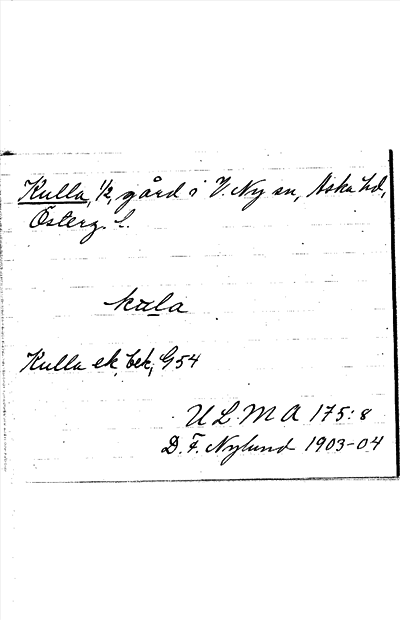 Kulla, 1/2, gård i V. Ny sn, Aska hd,
Österg. l.
kula
Kulla ek. bek, G54
ULMA 175:8
D. F. Nylund 1903-04